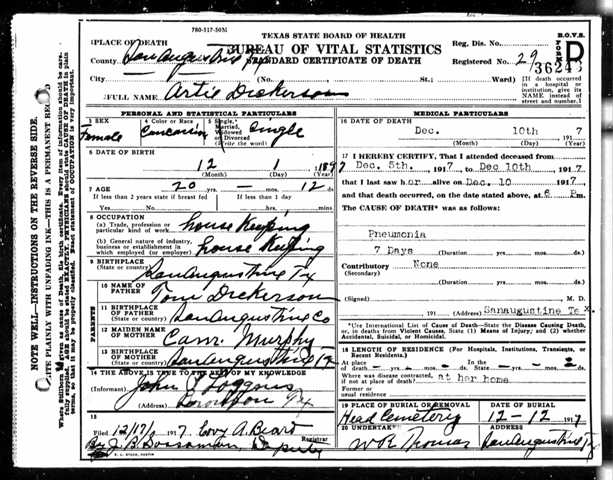 780-517-5031
TEXAS STATE BOARD OF HEALTH
B.O.V.S.
PLACE OF DEATH
County San Augustine Tex
BUREAU OF VITAL STATISTICS
STANDARD CERTIFICATE OF DEATH
Reg. Dis. No.
Registered No. 29
FORM D
36243
City (No. St.; Ward)
(If death occurred in a hospital or institution, give its NAME instead of street and number.)
FULL NAME Artie Dickerson
PERSONAL AND STATISTICAL PARTICULARS
3 SEX Female
4 Color or Race Caucasian
5 Single, Married, Widowed or Divorced (Write the word) Single
6 DATE OF BIRTH
12 1 1897
(Month) (Day) (Year)
7 AGE 20 yrs. — mos. 12 ds.
If less than 2 years state if breast fed If less than 1 day hrs. min.
8 OCCUPATION
(a) Trade, profession or particular kind of work house Keeping
(b) General nature of industry, business or establishment in which employed (or employer) house Keeping
9 BIRTHPLACE
(State or country) San Augustine Tx
PARENTS
10 NAME OF FATHER Tom Dickerson
11 BIRTHPLACE OF FATHER (State or country) San Augustine Co
12 MAIDEN NAME OF MOTHER Murphy
13 BIRTHPLACE OF MOTHER (State or country) San Augustine Tx
14 THE ABOVE IS TRUE TO THE BEST OF MY KNOWLEDGE
(Informant) John
(Address) Tx
15
Filed 12/17/ 1917 A. Beard Registrar
By J. B. Deputy
MEDICAL PARTICULARS
16 DATE OF DEATH
Dec. 10th 1917
(Month) (Day) (Year)
17 I HEREBY CERTIFY, That I attended deceased from
Dec. 5th. 1917 to Dec 10th 1917
that I last saw her alive on Dec. 10 1917
and that death occurred, on the date stated above, at 6 Pm.
The CAUSE OF DEATH* was as follows:
Pneumonia
7 Days (Duration yrs. mos. ds.)
Contributory None
(Secondary)
(Duration yrs. mos. ds.)
(Signed) M. D.
191 (Address) Sanaugustine Tex.
*Use International List of Cause of Death—State the Disease Causing Death, or, in deaths from Violent Causes, State (1) Means of Injury; and (2) whether Accidental, Suicidal, or Homicidal.
18 LENGTH OF RESIDENCE (For Hospitals, Institutions, Transients, or Recent Residents.)
At place of death — yrs. — mos. — ds. In the State yrs. mos. ds.
Where was disease contracted, if not at place of death? at her home
Former or usual residence
19 PLACE OF BURIAL OR REMOVAL DATE OF BURIAL
Head Cemetery 12-12- 1917
20 UNDERTAKER ADDRESS
Thomas San Augustine Tx
NOTE WELL—INSTRUCTIONS ON THE REVERSE SIDE.
WRITE PLAINLY WITH UNFADING INK—THIS IS A PERMANENT RECORD